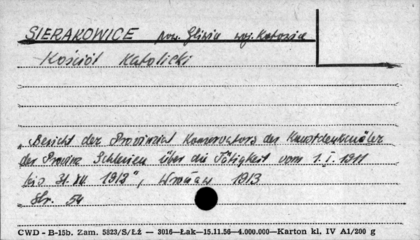 SIERAKOWICE pow. Gliwice woj. Katowice
Kościół Katolicki
„Bericht des Provinzial Konservators der Kunstdenkmäler
der Provinz Schlesien über die Tätigkeit vom 1. I. 1911
bis 31 XII 1912", Wrocław 1913
Str. 54
CWD - B-15b. Zam. 5823/S/Łż — 3016—Łak—15.11.56—4.000.000—Karton kl. IV A1/200 g